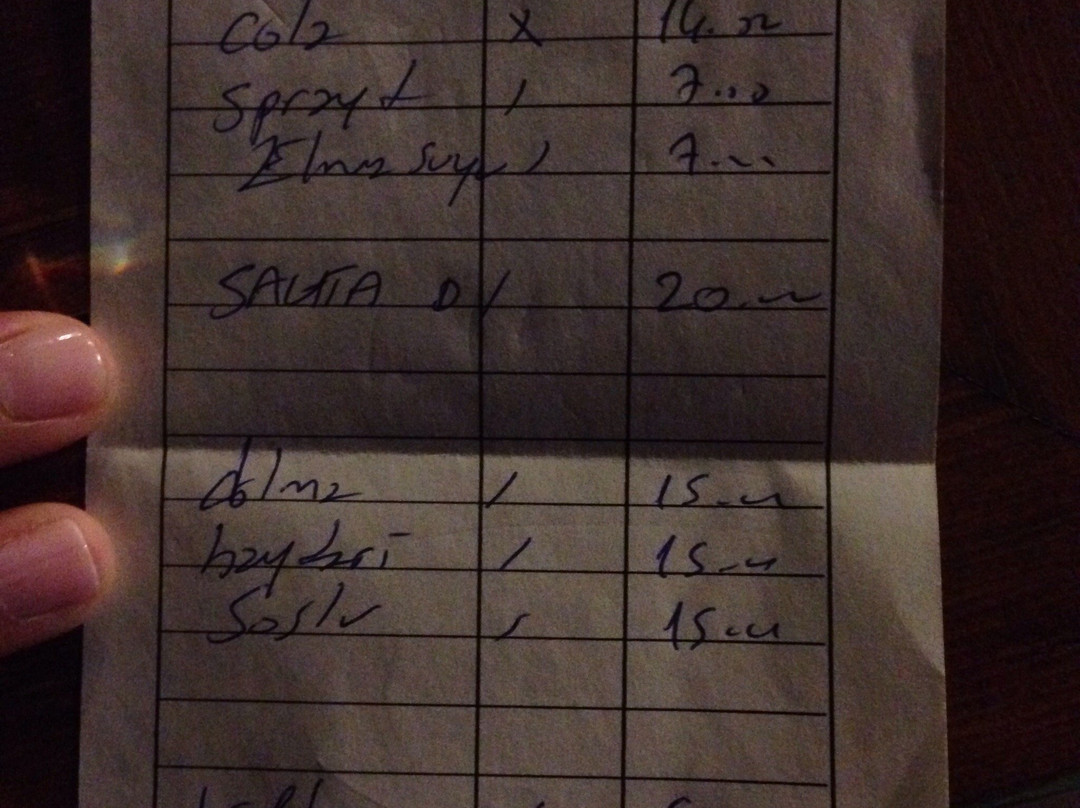 Cola x 14.00
Sprayt / 7.00
Elma suyu / 7.00
SALATA D / 20.00
dolma / 15.00
haydari / 15.00
Soslu / 15.00